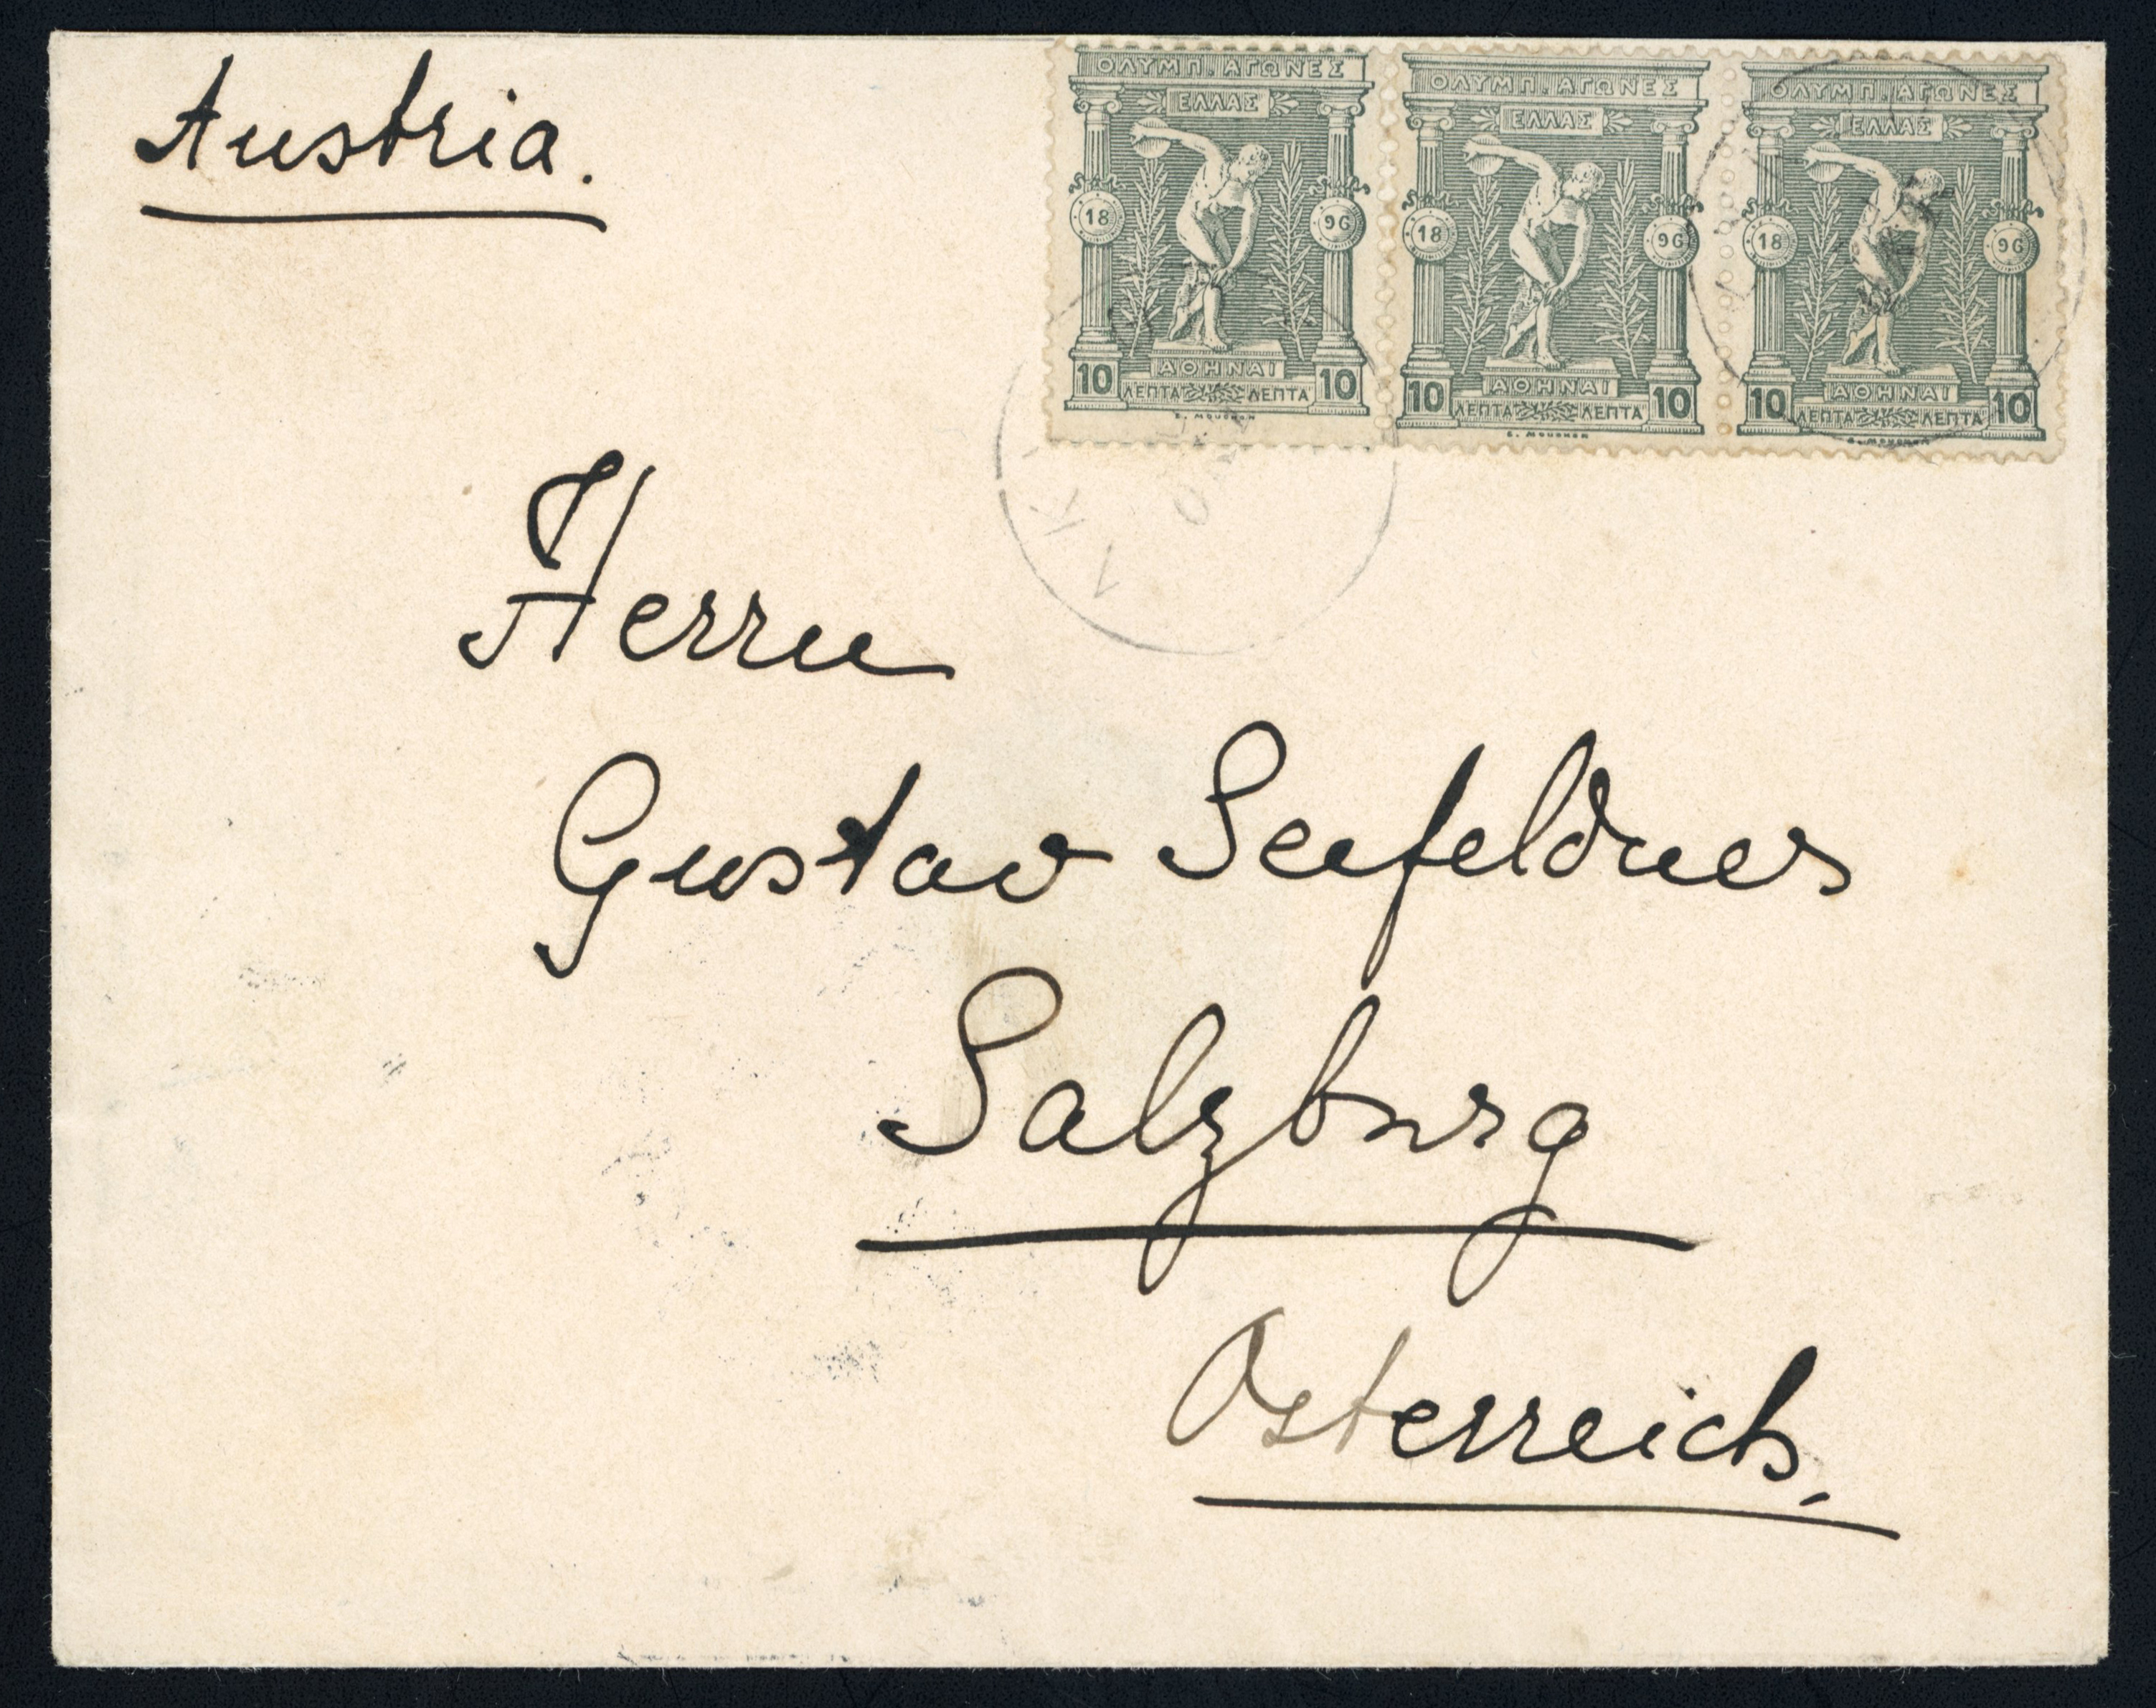 Austria.
ΟΛΥΜΠ. ΑΓΩΝΕΣ
ΕΛΛΑΣ
18 96
ΑΘΗΝΑΙ
10 ΛΕΠΤΑ ΛΕΠΤΑ 10
E. MOUCHON
ΟΛΥΜΠ. ΑΓΩΝΕΣ
ΕΛΛΑΣ
18 96
ΑΘΗΝΑΙ
10 ΛΕΠΤΑ ΛΕΠΤΑ 10
E. MOUCHON
ΟΛΥΜΠ. ΑΓΩΝΕΣ
ΕΛΛΑΣ
18 96
ΑΘΗΝΑΙ
10 ΛΕΠΤΑ ΛΕΠΤΑ 10
E. MOUCHON
Herrn
Gustav Seefeldner
Salzburg
Osterreich.